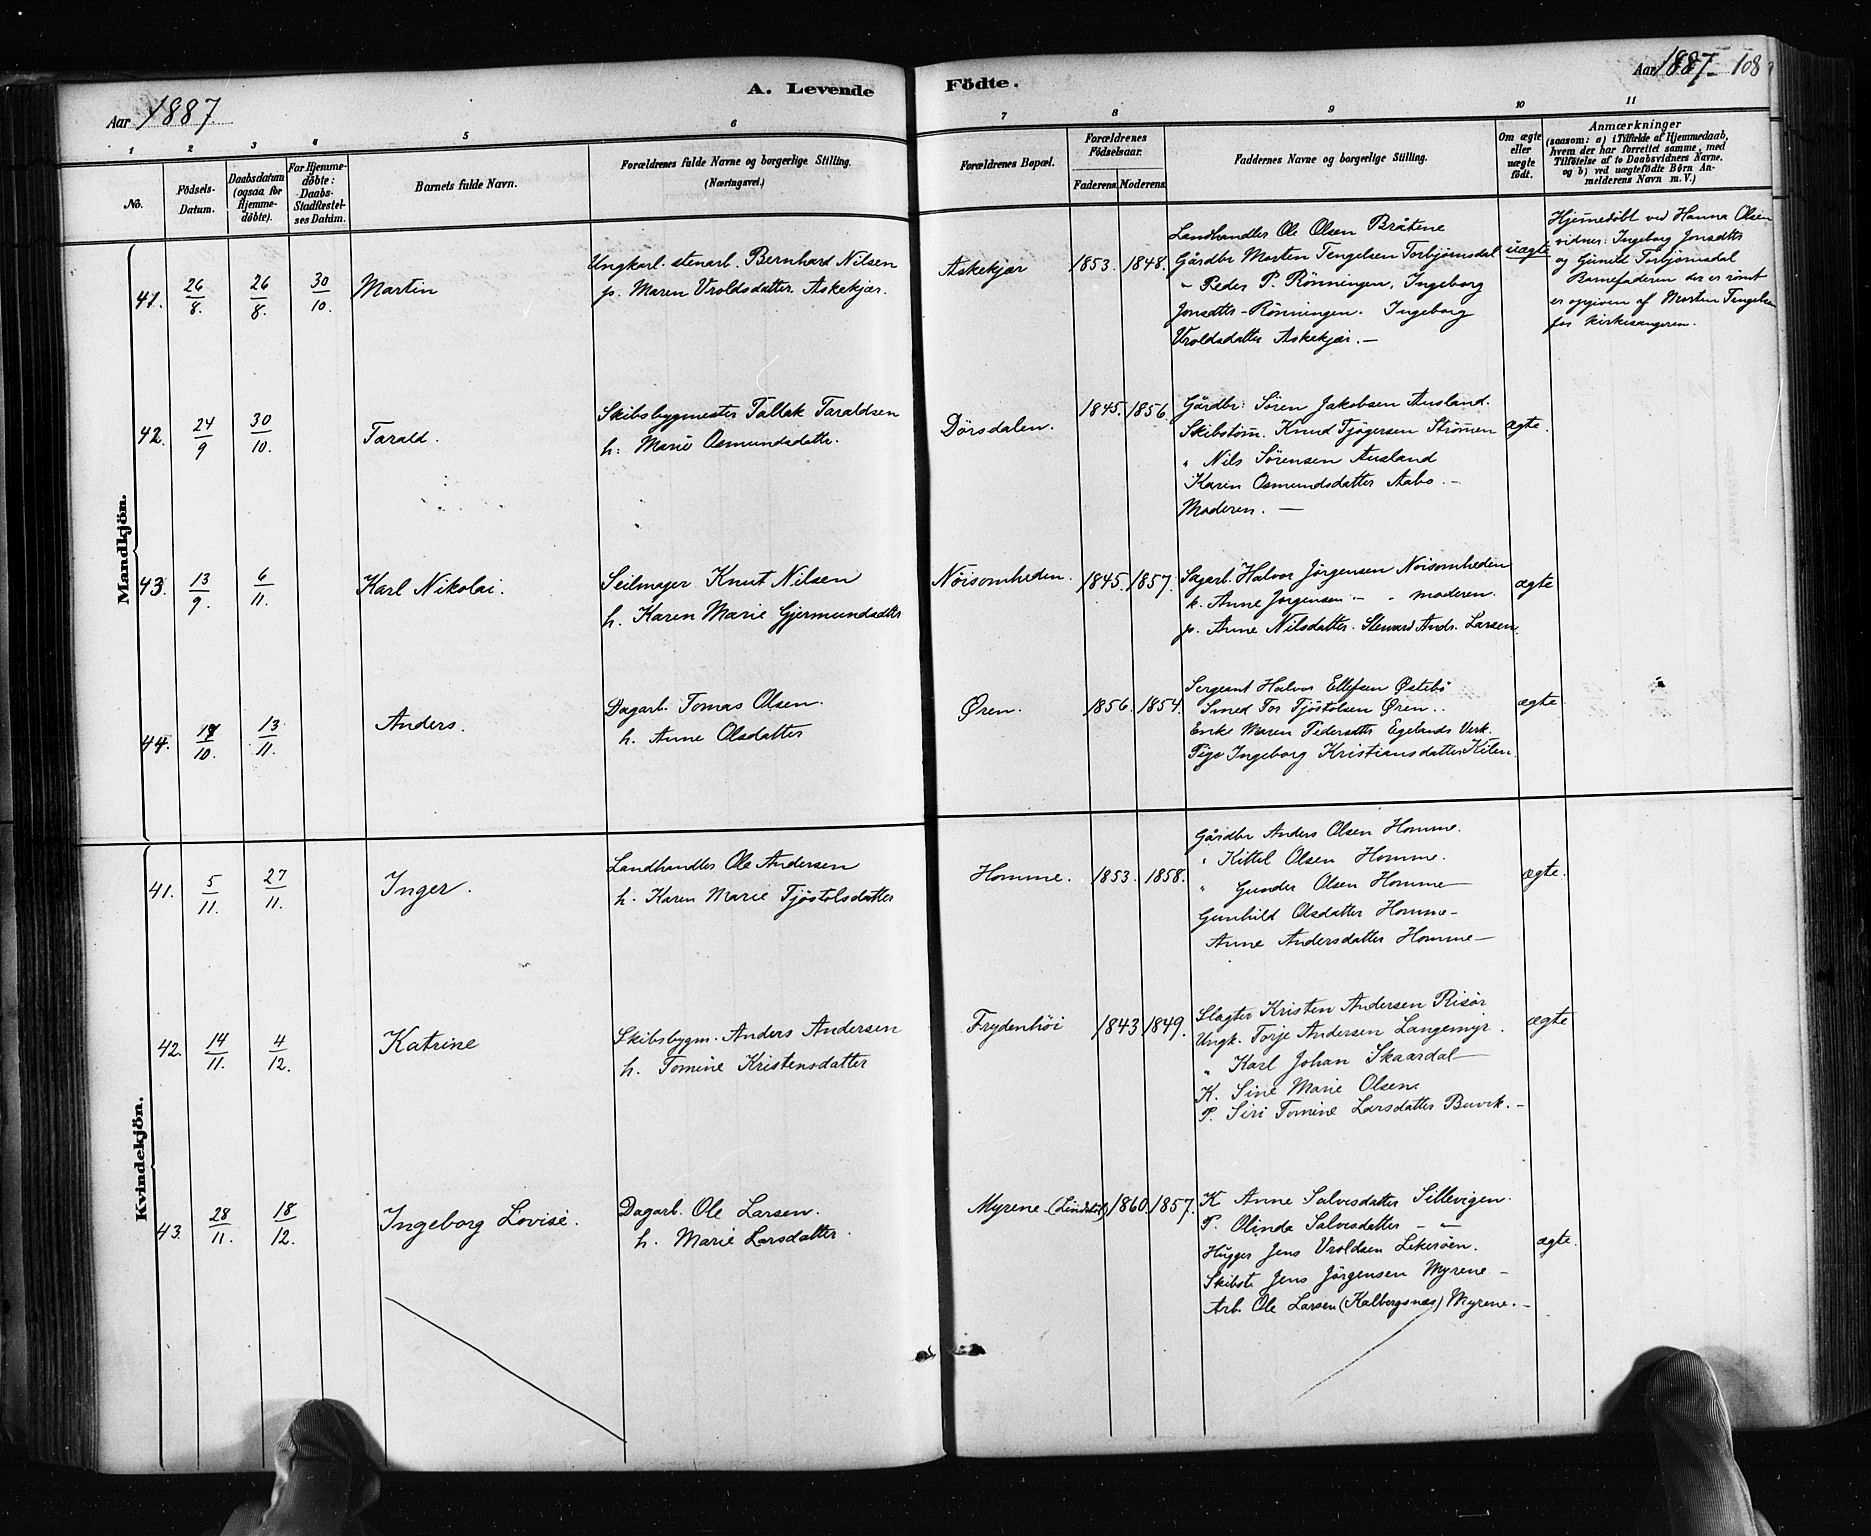 Aar 1887.
A. Levende Födte.
Aar 1887 108
1 2 3 4 5 6 7 8 9 10 11
No.
Födsels-Datum.
Daabsdatum (ogsaa for Hjemmedöbte).
For Hjemmedöbte: Daabs-Stadfæstelses Datum.
Barnets fulde Navn.
Forældrenes fulde Navne og borgerlige Stilling. (Næringsvei.)
Forældrenes Bopæl.
Forældrenes Födselsaar.
Faderens. Moderens.
Faddernes Navne og borgerlige Stilling.
Om ægte eller uægte födt.
Anmærkninger
(saasom: a) i Tilfælde af Hjemmedaab, hvem der har forrettet samme, med Tilföielse af to Daabsvidners Navne. og b) ved uægtefödte Börn Anmelderens Navn m. V.)
Mandkjön.
41. 26/8. 26/8. 30/10. Martin
Ungkarl. stenarb. Bernhard Nilsen
p. Maren Vroldsdatter Askekjær.
Askekjær 1853. 1848.
Landhandler Ole Olsen Bråtene
Gårdbr Morten Tengelsen Torbjørnsdal
" Peder P. Rönningen. Ingeborg
Jonsdtr - Rönningen. Ingeborg
Vroldsdatter Askekjær. —
uægte
Hjemedöbt ved Hanna Olsen
vidner: Ingeborg Jonsdtr
og Gunild Torbjørnsdal
Barnefaderen der er römt
er opgiven af Morten Tengelsen
for kirkesangeren.
42. 24/9 30/10. Tarald.
Skibsbygmester Tallak Taraldsen
h: Marie Osmundsdatter.
Dörsdalen. 1845. 1856
Gårdbr: Sören Jakobsen Ausland.
Skibstöm. Knud Tjögersen Strömen
" Nils Sörensen Ausland
Karen Osmundsdatter Aabo. -
Moderen. —
ægte.
43. 13/9. 6/11. Karl Nikolai.
Seilmager Knut Nilsen
h. Karen Marie Gjermundsdtr
Nöisomheden. 1845. 1857.
Sagarb. Halvor Jörgensen Nöisomheden
k. Anne Jörgensen - " moderen.
p. Anne Nilsdatter. Steward Andr. Larsen.
ægte
44. 17/10. 13/11. Anders.
Dagarb. Tomas Olsen.
h. Anne Olsdatter
Øren. 1856. 1854.
Sergeant Halvor Ellefsen Østebö
Smed Tor Tjöstolsen Øren..
Enke Maren Pedersdtr Egelands Verk.
Pige Ingeborg Kristiansdatter Kilen.
ægte
Kvindekjön.
41. 5/11. 27/11. Inger.
Landhandler Ole Andersen
h. Karen Marie Tjöstolsdatter
Homme. 1853. 1858.
Gårdbr Anders Olsen Homme.
" Kittel Olsen Homme.
" Gunder Olsen Homme
Gunhild Olsdatter Homme-
Anne Andersdatter Homme-
ægte.
42. 14/11. 4/12. Katrine
Skibsbygm. Anders Andersen
h. Tomine Kristensdatter
Frydenhöi 1843 1849.
Slagter Kristen Andersen Risör
Ungk. Torje Andersen Langemyr.
" Karl Johan Skaardal
K. Sine Marie Olsen.
P. Siri Tomine Larsdatter Buvik. -
ægte
43. 28/11. 18/12. Ingeborg Lovise.
Dagarb. Ole Larsen.
h. Marie Larsdatter.
Myrene (Lindstöl) 1860. 1857.
K Anne Salvesdatter Sillevigen.
P. Olinda Salvesdatter - "
Hugger Jens Vroldsen Lekeröen.
Skibst. Jens Jörgensen Myrene -
Arb. Ole Larsen (Kalbergsnæs) Myrene. -
ægte.